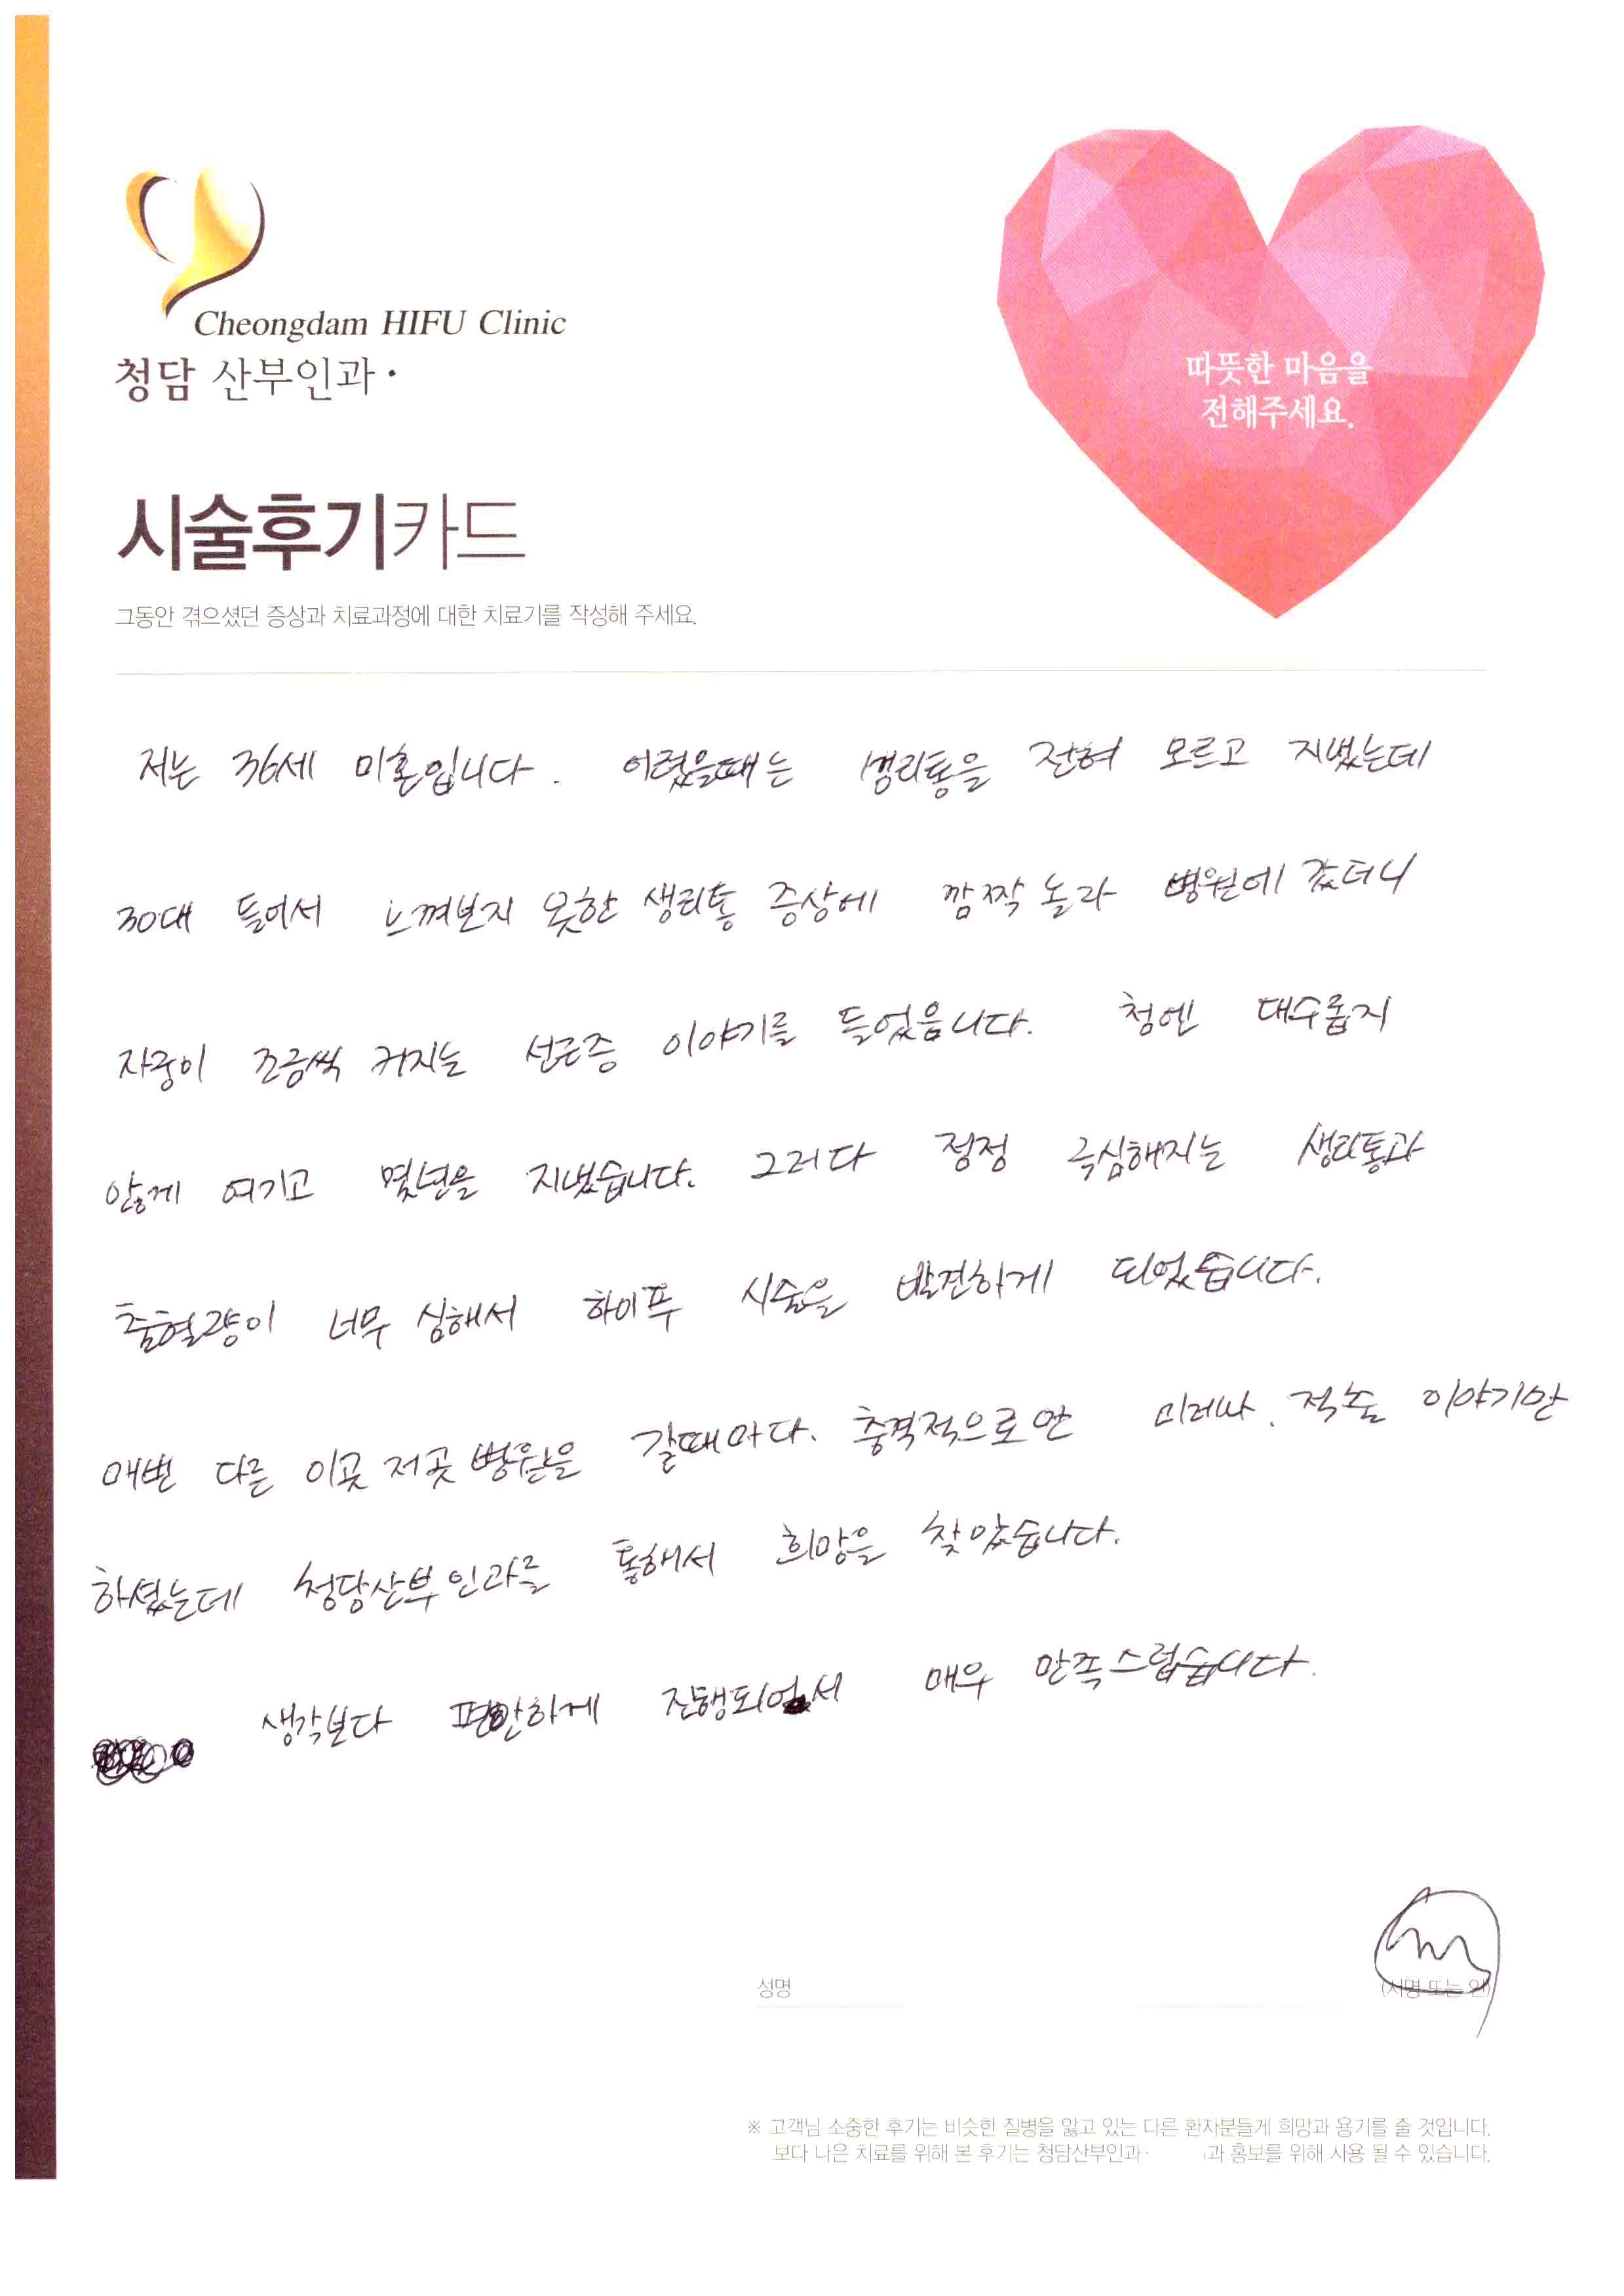 Cheongdam HIFU Clinic
청담 산부인과·
따뜻한 마음을
전해주세요.
시술후기카드
그동안 겪으셨던 증상과 치료과정에 대한 치료기를 작성해 주세요.
저는 36세 미혼입니다. 어렸을때는 생리통을 전혀 모르고 지냈는데
30대 들어서 느껴보지 못한 생리통 증상에 깜짝 놀라 병원에 갔더니
자궁이 조금씩 커지는 선근증 이야기를 들었음니다. 청엔 대수롭지
않게 여기고 몇년을 지냈습니다. 그러다 정정 극심해지는 생리통과
출혈량이 너무 심해서 하이푸 시술을 발견하게 되었습니다.
매번 다른 이곳 저곳 병원을 갈때마다. 충격적으로만 미레나, 적출 이야기만
하셨는데 청담산부인과를 통해서 희망을 찾았습니다.
생각보다 편안하게 진행되어서 매우 만족스럽습니다.
성명 (서명 또는 인)
※ 고객님 소중한 후기는 비슷한 질병을 앓고 있는 다른 환자분들게 희망과 용기를 줄 것입니다.
보다 나은 치료를 위해 본 후기는 청담산부인과· 과 홍보를 위해 사용 될 수 있습니다.